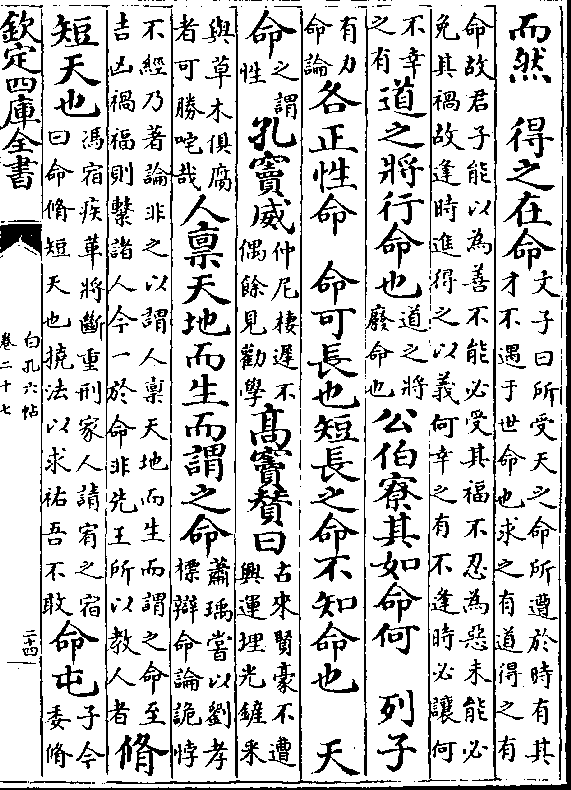 而然　得之在命文子曰所受天之命所遭於時有其才不遇于世命也求之有道得之有
命故君子能以為善不能必受其福不忍為惡未能必免其禍故逢時進得之以義何幸之有不逢時必讓何
不幸之有道之將行命也道之將廢命也公伯寮其如命何　列子
有力命論各正性命　命可長也短長之命不知命也　天
命之謂性孔竇威仲尼棲遲不偶餘見勸學髙竇賛曰古來賢豪不遭興運埋光鏟采
與草木俱腐者可勝咤哉人禀天地而生而謂之命蕭瑀嘗以劉孝標辯命論詭悖
不經乃著論非之以謂人禀天地而生而謂之命至吉凶禍福則繫諸人今一於命非先王所以教人者脩
短天也馮宿疾革將斷重刑家人請宥之宿曰命脩短天也撓法以求祐吾不敢命屯子今委脩
欽定四庫全書
白孔六帖
卷二十七
二十四